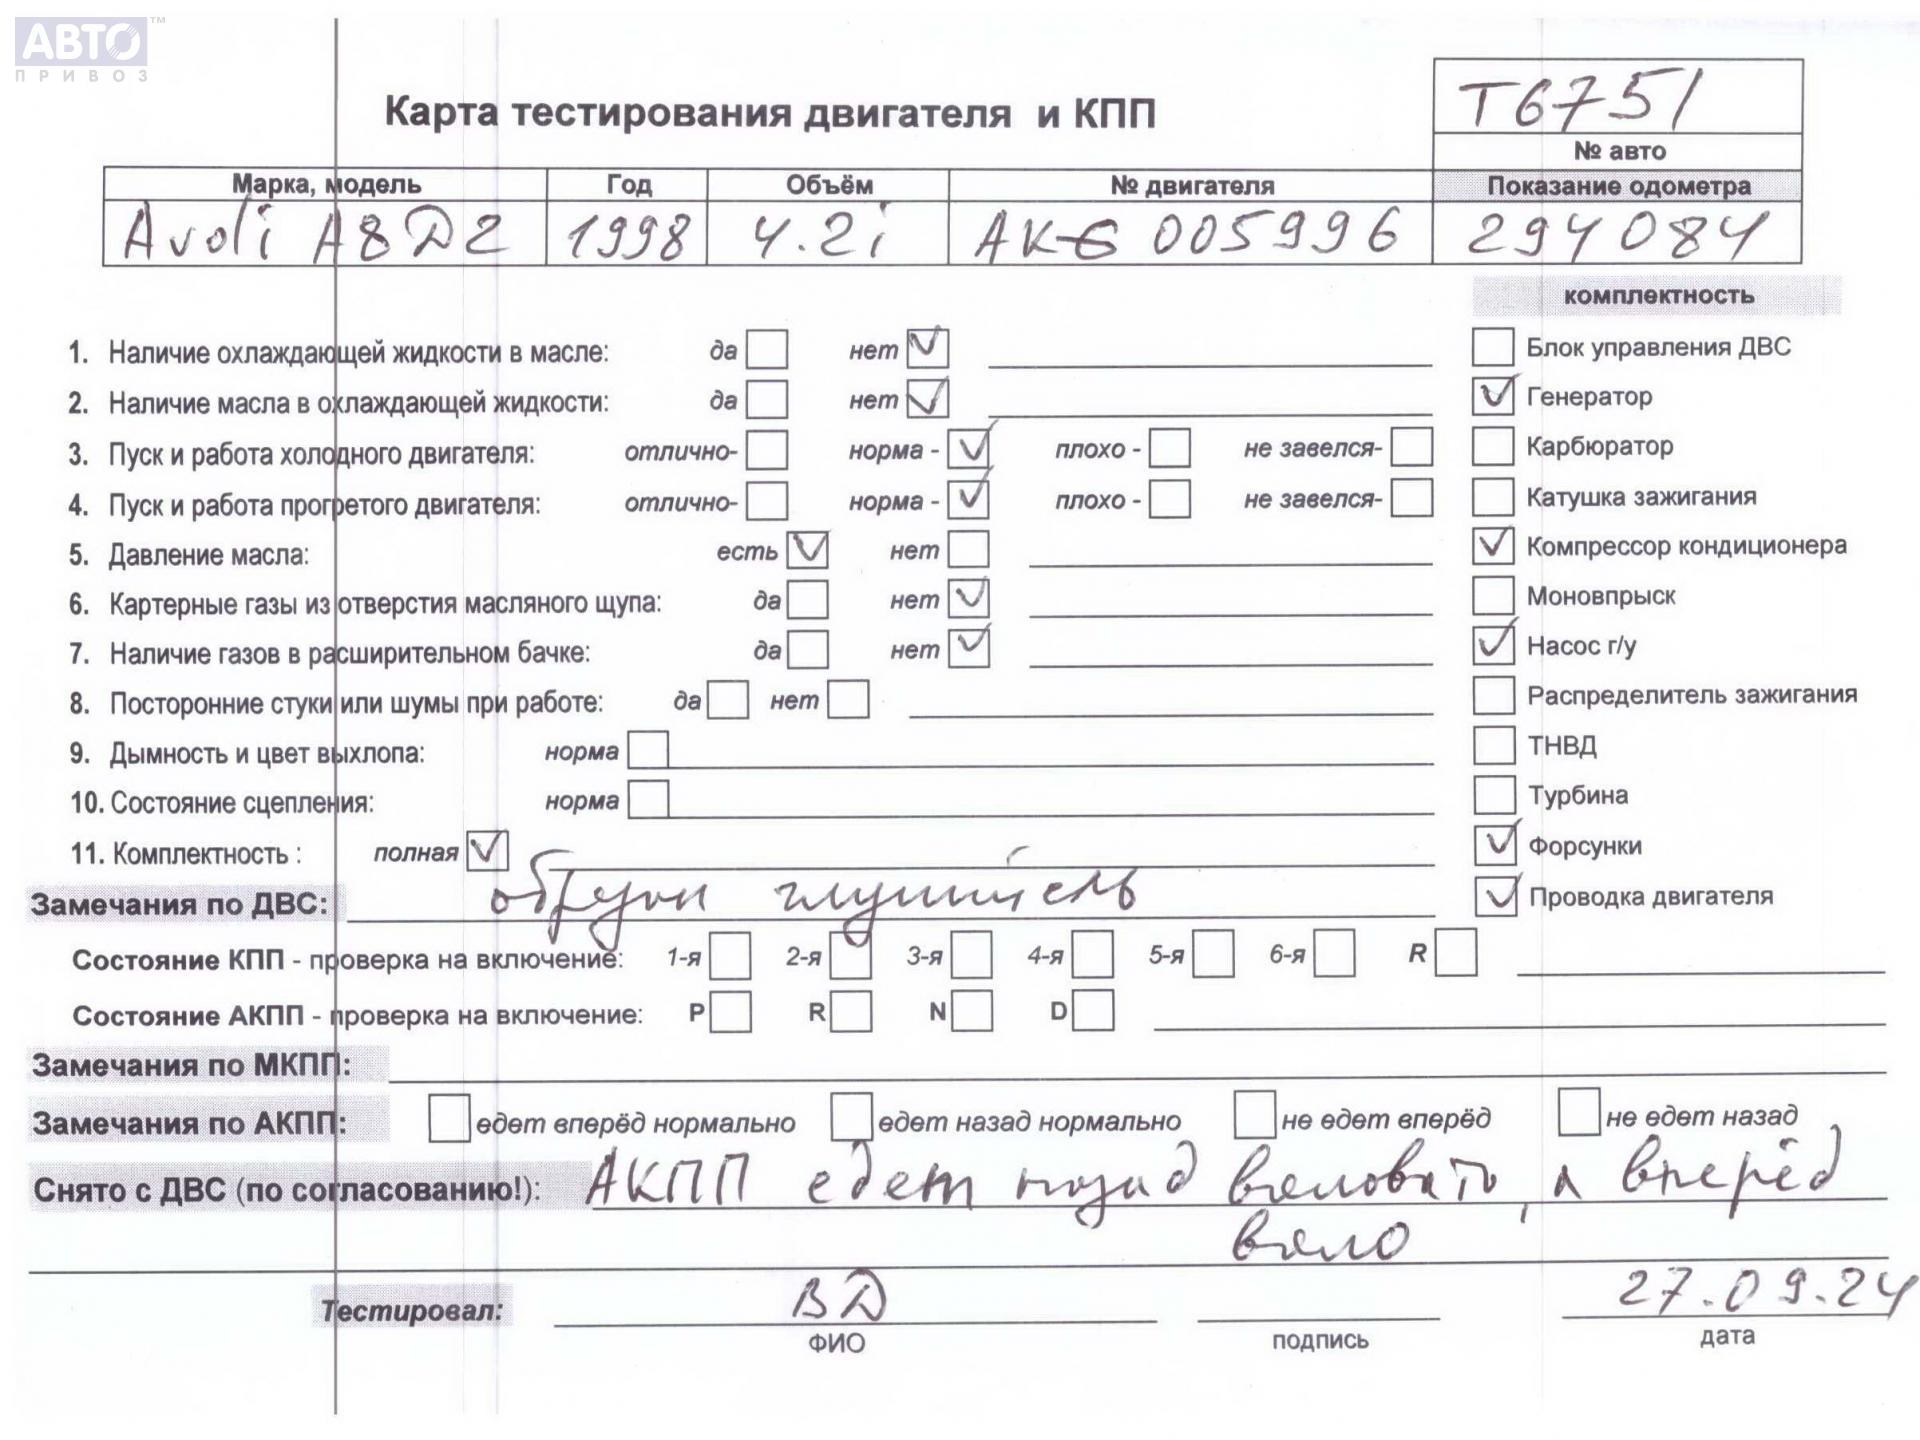 АВТО™
ПРИВОЗ
T6751
Карта тестирования двигателя и КПП
№ авто
Марка, модель Год Объём № двигателя Показание одометра
Avdi A8D2 1998 4.2i AKG 005996 294084
комплектность
1. Наличие охлаждающей жидкости в масле: да нет ✓ Блок управления ДВС
2. Наличие масла в охлаждающей жидкости: да нет ✓ ✓ Генератор
3. Пуск и работа холодного двигателя: отлично- норма - ✓ плохо - не завелся- Карбюратор
4. Пуск и работа прогретого двигателя: отлично- норма - ✓ плохо - не завелся- Катушка зажигания
5. Давление масла: есть ✓ нет ✓ Компрессор кондиционера
6. Картерные газы из отверстия масляного щупа: да нет ✓ Моновпрыск
7. Наличие газов в расширительном бачке: да нет ✓ ✓ Насос г/у
8. Посторонние стуки или шумы при работе: да нет Распределитель зажигания
9. Дымность и цвет выхлопа: норма ТНВД
10. Состояние сцепления: норма Турбина
11. Комплектность : полная ✓ ✓ Форсунки
Замечания по ДВС: обрезан глушитель ✓ Проводка двигателя
Состояние КПП - проверка на включение: 1-я 2-я 3-я 4-я 5-я 6-я R
Состояние АКПП - проверка на включение: P R N D
Замечания по МКПП:
Замечания по АКПП: едет вперёд нормально едет назад нормально не едет вперёд не едет назад
Снято с ДВС (по согласованию!): АКПП едет назад вяловато, а вперёд
вяло
Тестировал: ВД 27.09.24
ФИО подпись дата